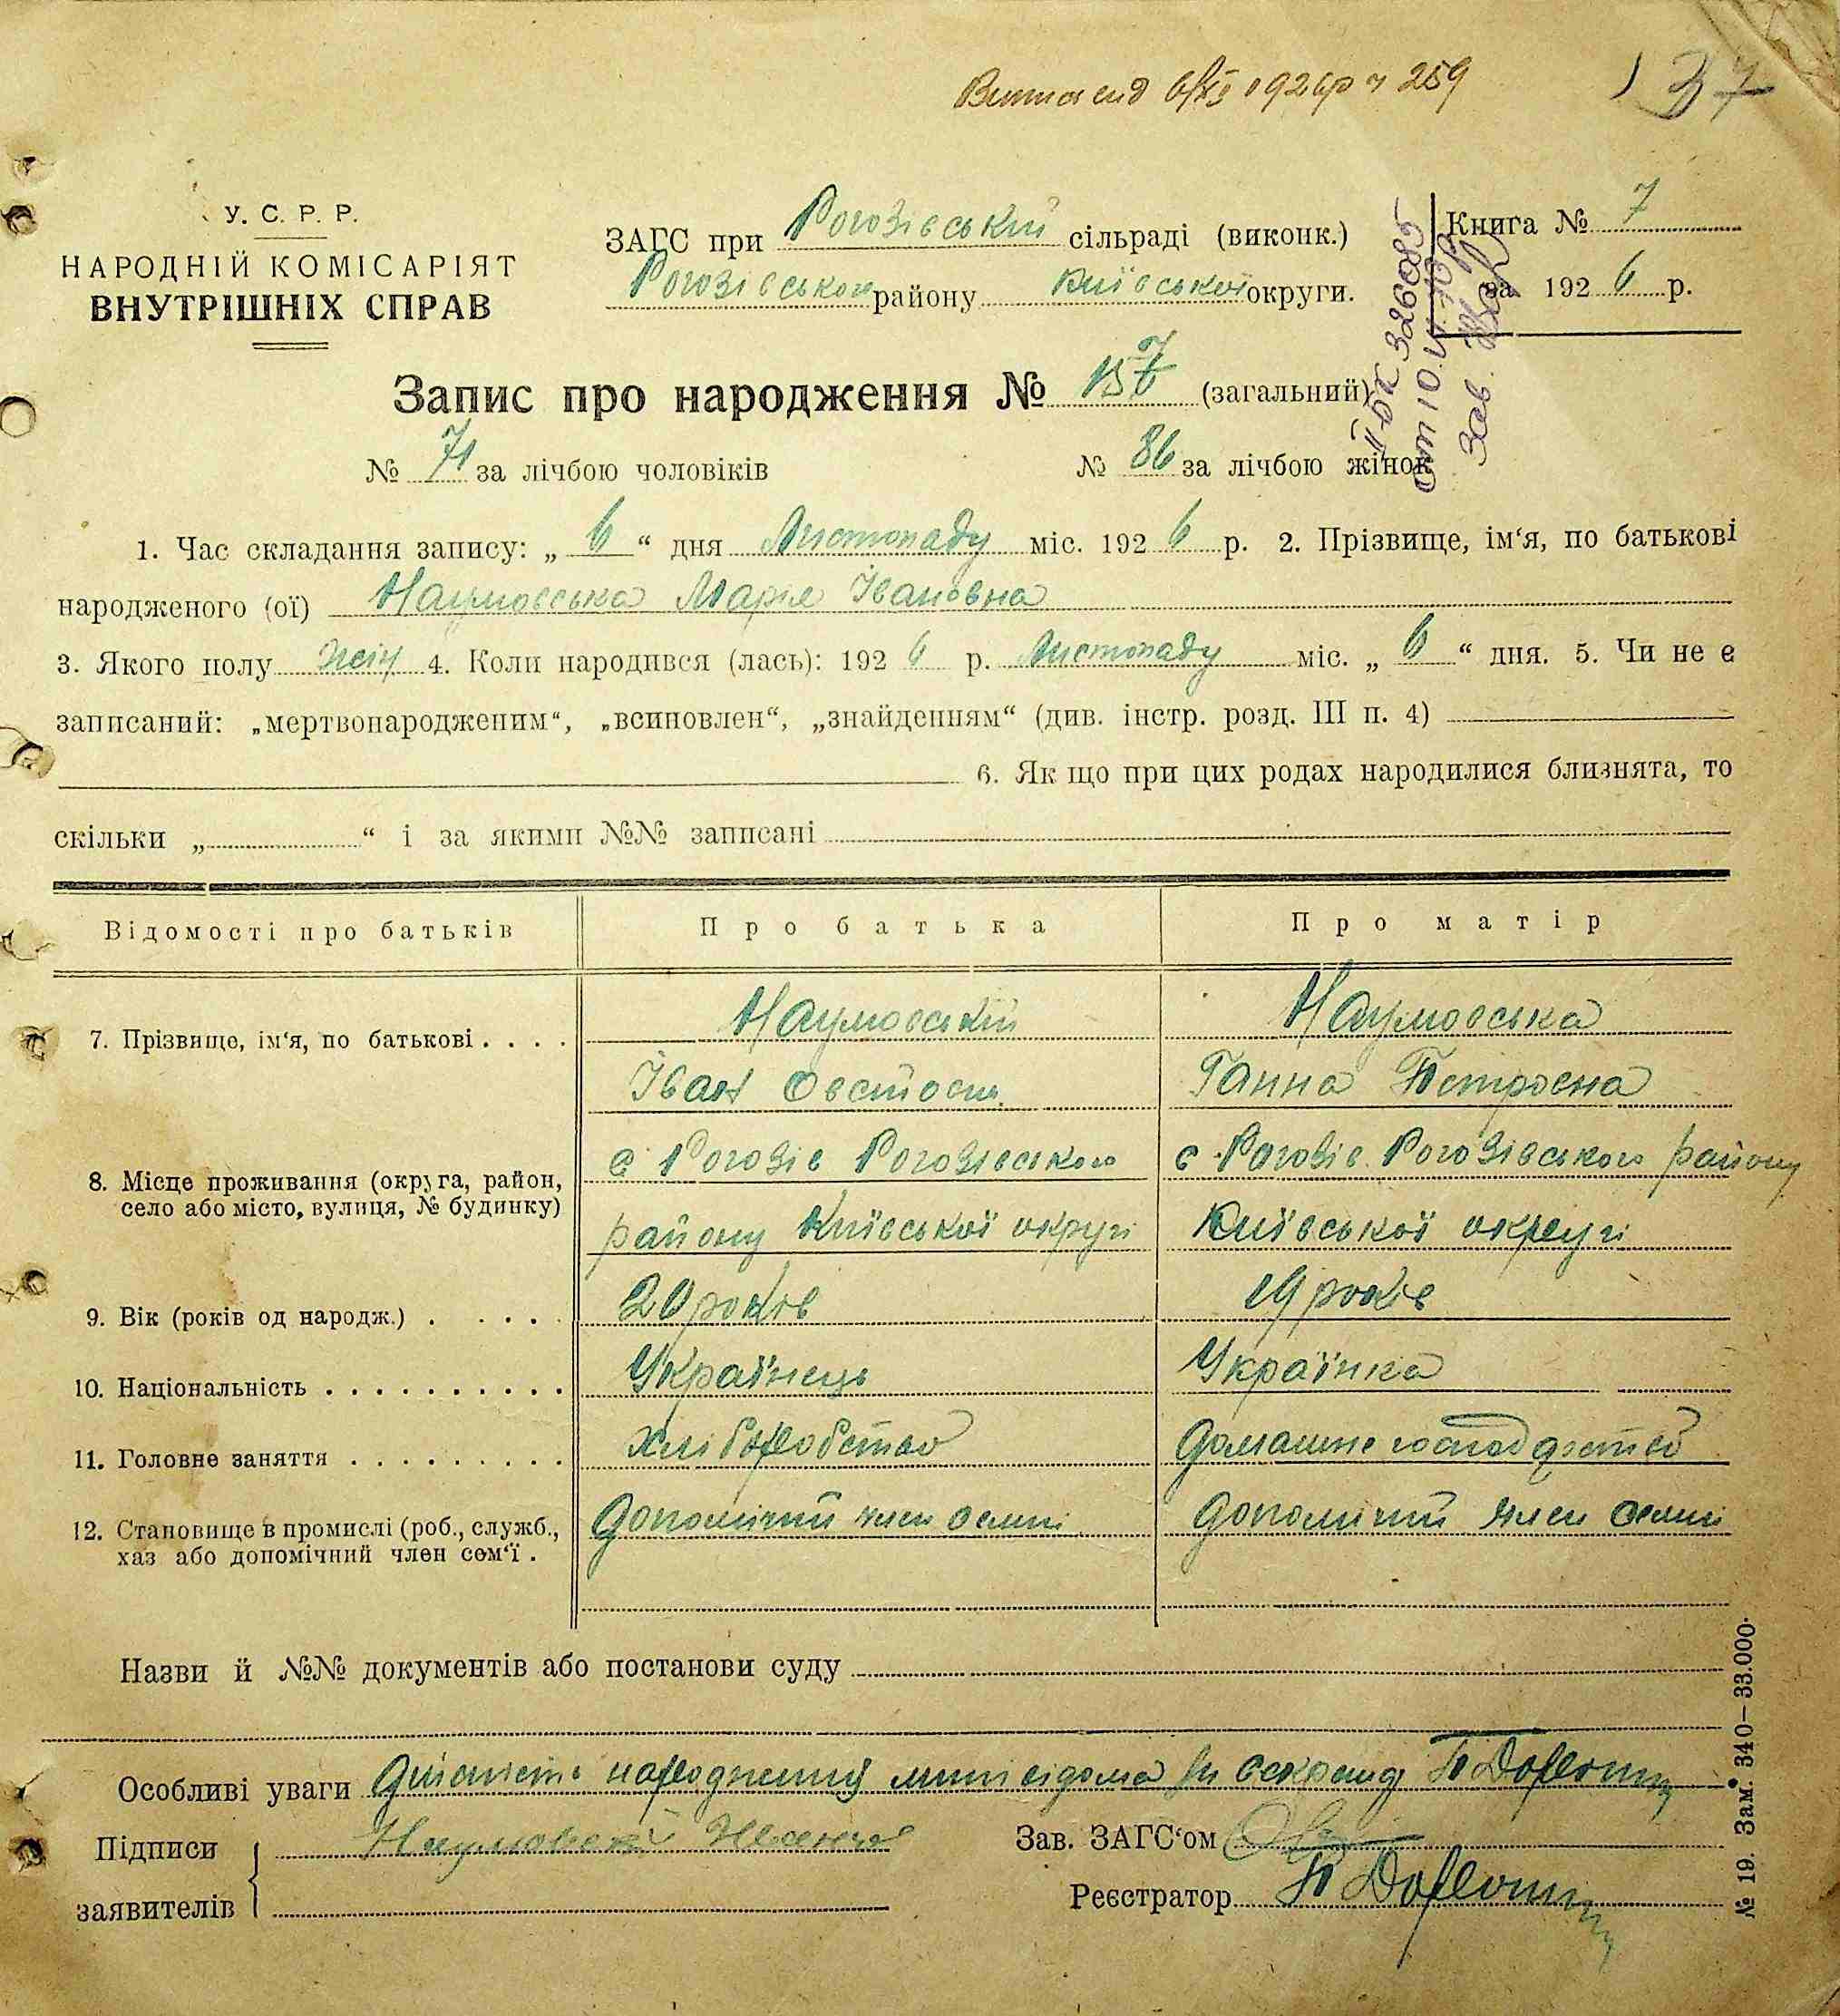 6/XI 1926р ч 259
37
У. С. Р. Р.
НАРОДНІЙ КОМІСАРІЯТ
ВНУТРІШНІХ СПРАВ
ЗАГС при Рогозівській сільраді (виконк.)
Рогозівського району Київської округи.
Книга № 7
за 1926 р.
Запис про народження № 157 (загальний)
№ 71 за лічбою чоловіків № 86 за лічбою жінок
II-БК 326085
от 10.VI
Зав.
1. Час складання запису: „ 6 “ дня Листопаду міс. 1926 р. 2. Прізвище, ім‘я, по батькові
народженого (ої) Наумовська Марія Івановна
3. Якого полу жін 4. Коли народився (лась): 1926 р. Листопаду міс. „ 6 “ дня. 5. Чи не є
записаний: „мертвонародженим“, „всиновлен“, „знайденням“ (див. інстр. розд. III п. 4)
6. Як що при цих родах народилися близнята, то
скільки „ “ і за якими №№ записані
Відомості про батьків Про батька Про матір
7. Прізвище, ім‘я, по батькові . . . . Наумовський Наумовська
Іван Ганна Петровна
8. Місце проживання (округа, район, с Рогозів Рогозівського с. Рогозів Рогозівського району
село або місто, вулиця, № будинку) району Київської округі Київської округі
9. Вік (років од народж.) . . . . . 20 років 19 років
10. Національність . . . . . . . . . . Українець Українка
11. Головне заняття . . . . . . . . . Хліборобство Домашнє господарство
12. Становище в промислі (роб., служб., Допомічний член семьї Допомічний член семьї
хаз або допомічний член сем‘ї .
Назви й №№ документів або постанови суду
Особливі уваги Дійсність народження мині відома
Підписи Наумовский Зав. ЗАГС‘ом
заявителів Реєстратор
№ 19. Зам. 340—33.000.